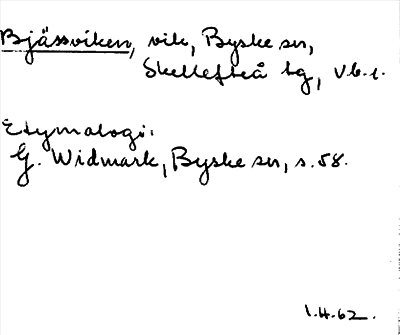 Bjässviken, vik, Byske sn,
Skellefteå tg, Vb. l.
Etymologi:
G. Widmark, Byske sn, s. 58.
1.4.62.